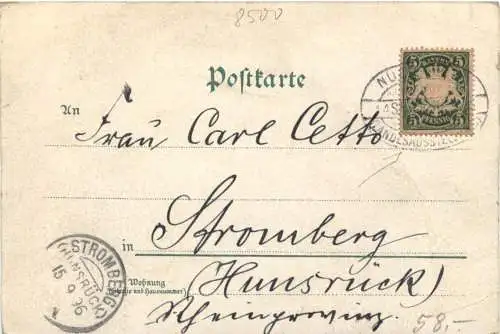 8500
Postkarte
5 5
PFENNIG
LANDESAUSSTELL
An
Frau Carl Cetto
in Stromberg
(Hunsrück)
Rheinprovinz.
Wohnung
(Straße und Hausnummer)
STROMBERG
(HUNSRÜCK)
15 9 96
58,-